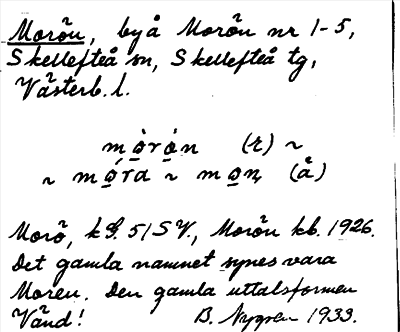 Morön, byå Morön nr 1-5,
Skellefteå sn, Skellefteå tg,
Västerb. l.
mo̱ro̱n (t) ~
~ mo̱ra ~ mo̱n (å)
Morö, k 51 SV., Morön kb. 1926.
Det gamla namnet synes vara
Moren. Den gamla uttalsformen
Vänd! B. Nygren 1933.